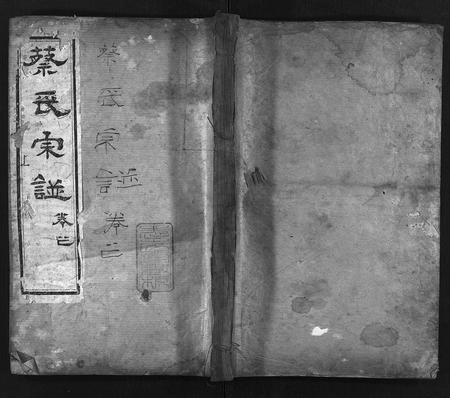 蔡氏宗譜
卷二
蔡氏宗譜卷二